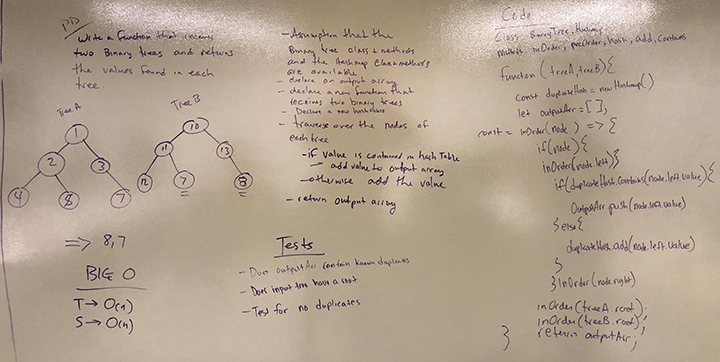 PD
Write a function that receives
two Binary trees and returns
the values found in each
tree
Tree A
1
2
3
4
8
7
Tree B
10
11
13
12
7
8
=> 8,7
BIG O
T → O(n)
S → O(n)
- Assumption that the
Binary tree class + methods
and the Hashmap class + methods
are available
- declare an output array
- declare a new function that
receives two binary trees
- Declare a new hashtable
- traverse over the nodes of
each tree
- if value is contained in hash Table
- add value to output array
- otherwise add the value
- return output array
Tests
- Does outputArr contain known duplicates
- Does input tree have a root
- Test for no duplicates
Code
Class: BinaryTree, Hashmap
methods: inOrder, preOrder, hash, add, contains
function (treeA, treeB) {
const duplicateHash = new Hashmap()
let outputArr = [ ];
const = inOrder(node) => {
if(node) {
inOrder(node.left)}
if(duplicateHash.contains(node.left.value) {
OutputArr.push(node.left.value)
} else {
duplicateHash.add(node.left.value)
}
} inOrder(node.right)
inOrder(treeA.root);
inOrder(treeB.root);
return outputArr;
}